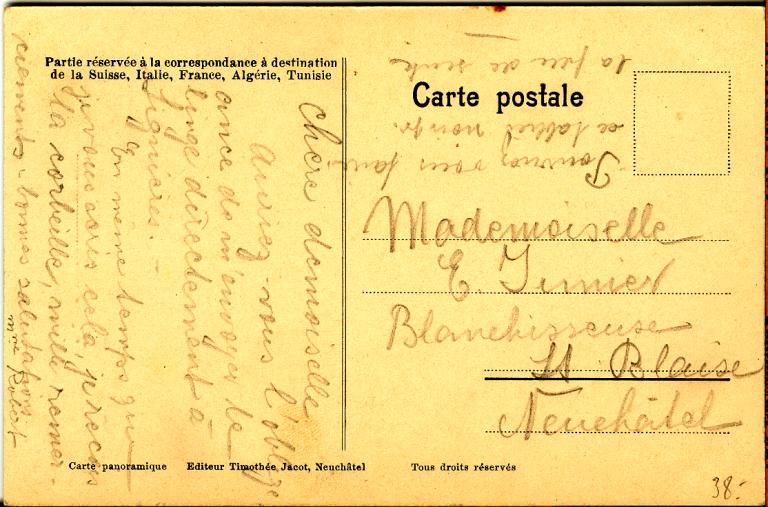 Partie réservée à la correspondance à destination
de la Suisse, Italie, France, Algérie, Tunisie
Carte postale
Chère demoiselle
Auriez-vous l'oblige
ance de m'envoyer le
linge directement à
Lignières. -
En même temps que
je vous écris cela, je reçois
la corbeille, mille remer-
ciements - bonnes salutations
Mme Robert
Pouvez vous faire
ce tablier
la peu de suite
Mademoiselle
E. Junier
Blanchisseuse
St Blaise
Neuchâtel
Carte panoramique Editeur Timothée Jacot, Neuchâtel Tous droits réservés
38.-